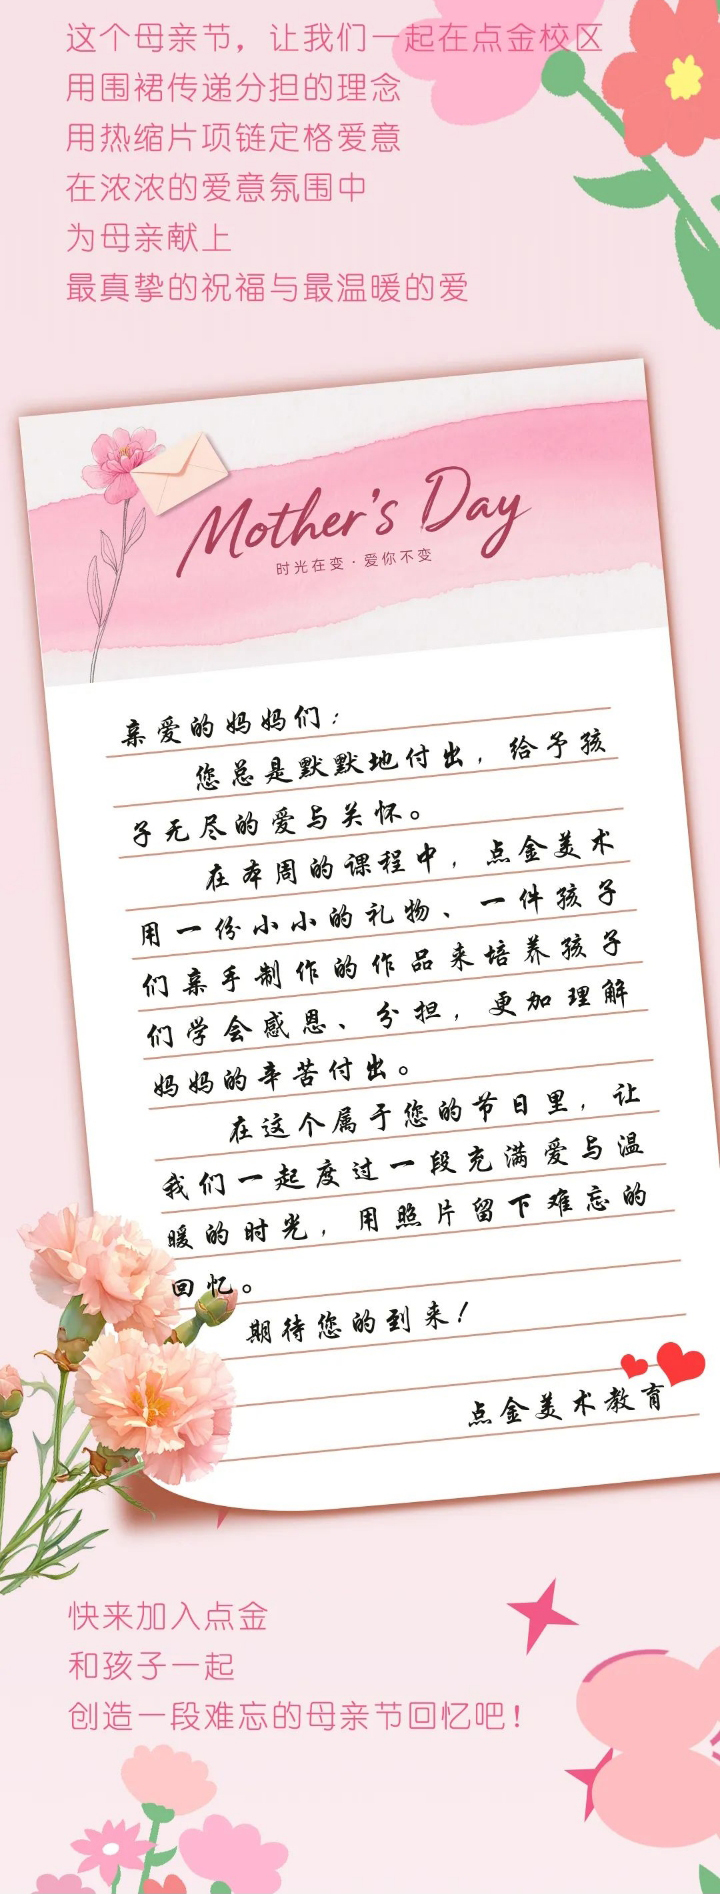 这个母亲节，让我们一起在点金校区
用围裙传递分担的理念
用热缩片项链定格爱意
在浓浓的爱意氛围中
为母亲献上
最真挚的祝福与最温暖的爱
Mother's Day
时光在变·爱你不变
亲爱的妈妈们：
您总是默默地付出，给予孩
子无尽的爱与关怀。
在本周的课程中，点金美术
用一份小小的礼物、一件孩子
们亲手制作的作品来培养孩子
们学会感恩、分担，更加理解
妈妈的辛苦付出。
在这个属于您的节日里，让
我们一起度过一段充满爱与温
暖的时光，用照片留下难忘的
回忆。
期待您的到来！
点金美术教育
快来加入点金
和孩子一起
创造一段难忘的母亲节回忆吧！